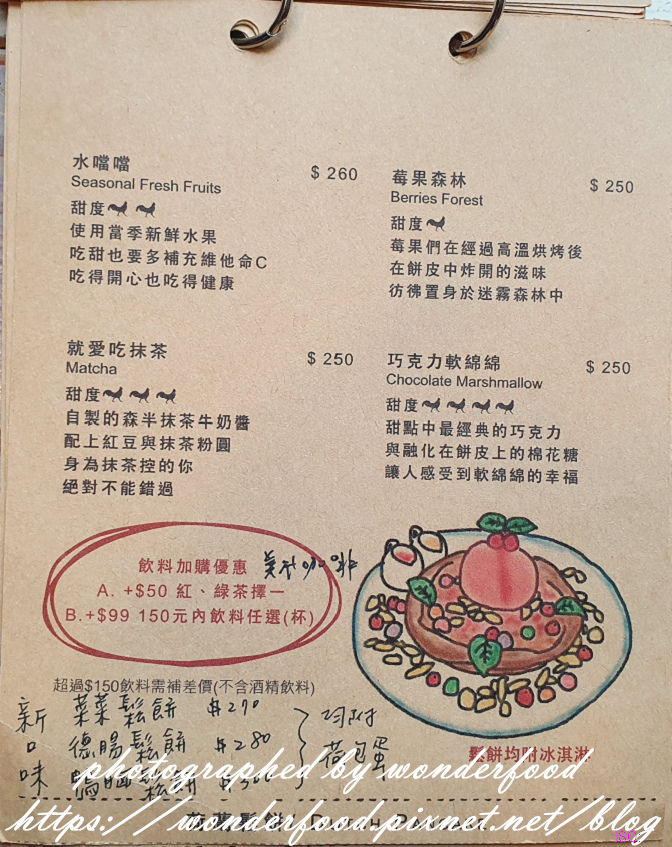 水噹噹 $ 260
Seasonal Fresh Fruits
甜度
使用當季新鮮水果
吃甜也要多補充維他命C
吃得開心也吃得健康
莓果森林 $ 250
Berries Forest
甜度
莓果們在經過高溫烘烤後
在餅皮中炸開的滋味
彷彿置身於迷霧森林中
就愛吃抹茶 $ 250
Matcha
甜度
自製的森半抹茶牛奶醬
配上紅豆與抹茶粉圓
身為抹茶控的你
絕對不能錯過
巧克力軟綿綿 $ 250
Chocolate Marshmallow
甜度
甜點中最經典的巧克力
與融化在餅皮上的棉花糖
讓人感受到軟綿綿的幸福
飲料加購優惠 美式咖啡
A. +$50 紅、綠茶擇一
B.+$99 150元內飲料任選(杯)
超過$150飲料需補差價(不含酒精飲料)
新口味
菜菜鬆餅 $270
德腸鬆餅 $280
鬆餅
均附
荷包蛋
鬆餅均附冰淇淋
photographed by wonderfood
https://wonderfood.pixnet.net/blog